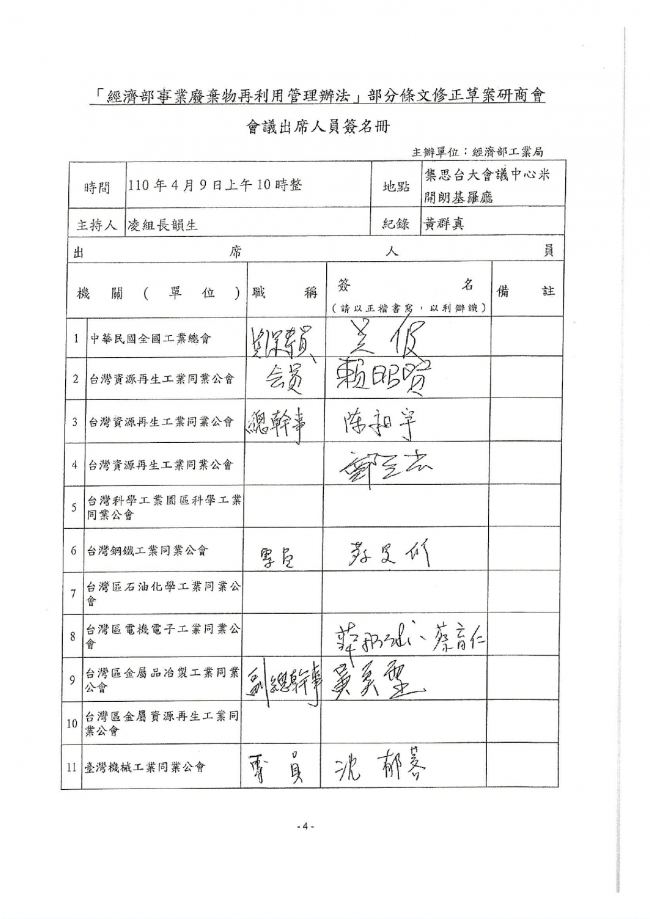 「經濟部事業廢棄物再利用管理辦法」部分條文修正草案研商會
會議出席人員簽名冊
主辦單位：經濟部工業局
時間 110年4月9日上午10時整 地點 集思台大會議中心米
開朗基羅廳
主持人 凌組長韻生 紀錄 黃群真
出 席 人 員
機 關 ( 單 位 ) 職 稱 簽 名 備 註
(請以正楷書寫，以利辨識)
1 中華民國全國工業總會
2 台灣資源再生工業同業公會 会員 賴昭賢
3 台灣資源再生工業同業公會 總幹事 陈昶宇
4 台灣資源再生工業同業公會
5 台灣科學工業園區科學工業
同業公會
6 台灣鋼鐵工業同業公會 專員
7 台灣區石油化學工業同業公
會
8 台灣區電機電子工業同業公
會 、蔡育仁
9 台灣區金屬品冶製工業同業
公會 副總幹事
10 台灣區金屬資源再生工業同
業公會
11 臺灣機械工業同業公會 專員 沈郁蓉
-4-